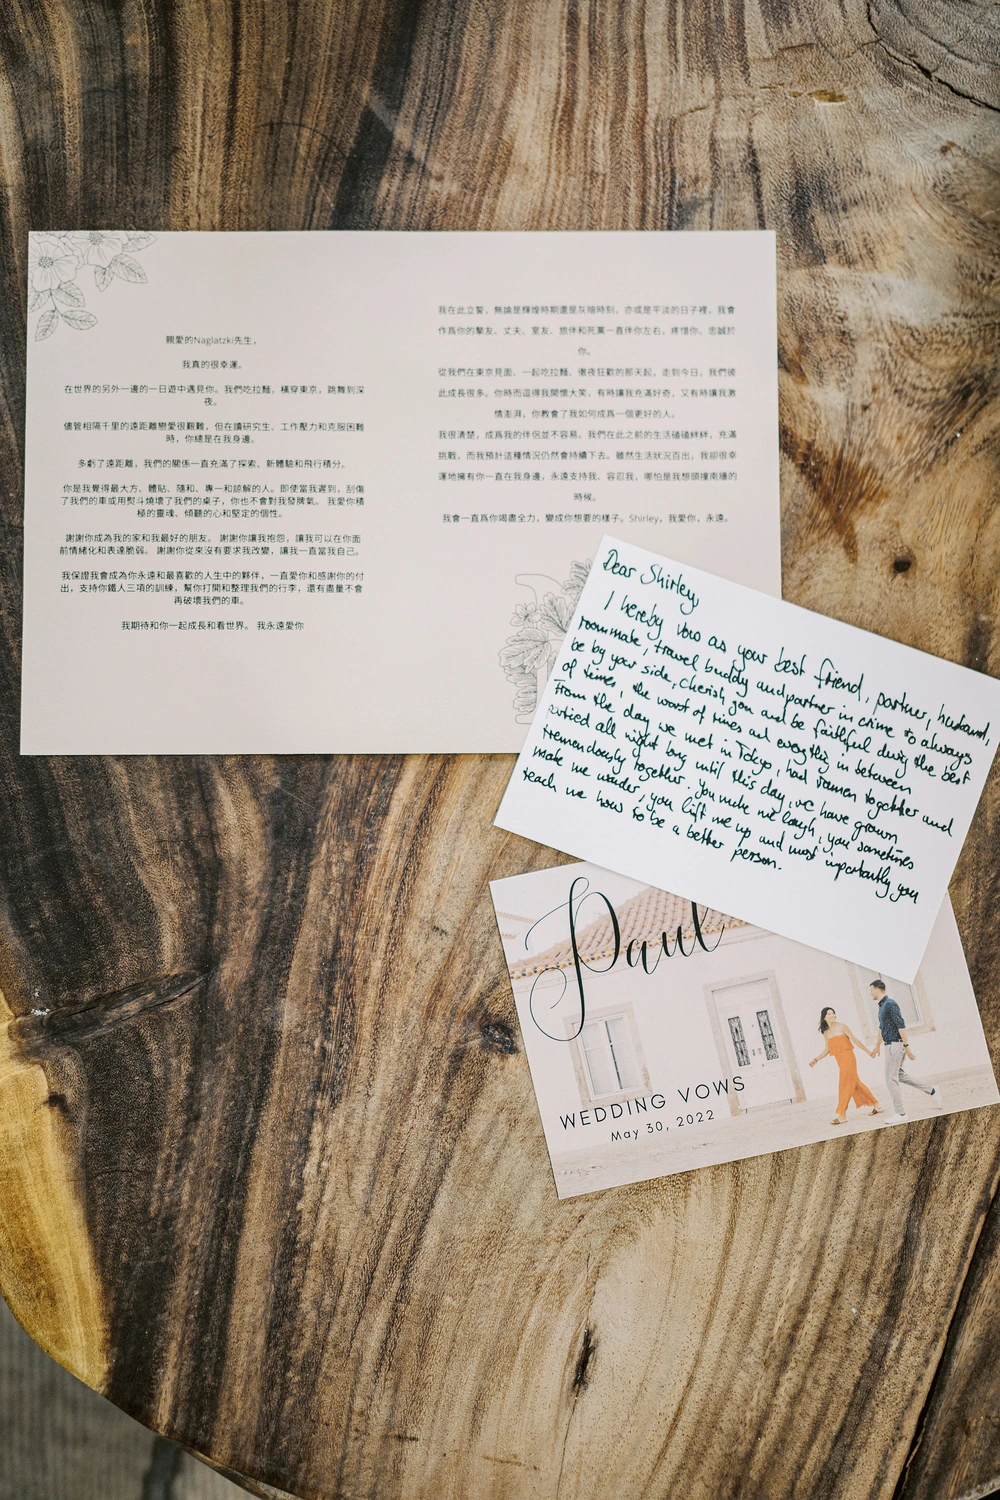 親愛的Naglatzki先生，
我真的很幸運。
在世界的另外一邊的一日遊中遇見你。我們吃拉麵，橫穿東京，跳舞到深
夜。
儘管相隔千里的遠距離戀愛很艱難，但在讀研究生、工作壓力和克服困難
時，你總是在我身邊。
多虧了遠距離，我們的關係一直充滿了探索、新體驗和飛行積分。
你是我覺得最大方、體貼、隨和、專一和諒解的人。即使當我遲到，刮傷
了我們的車或用熨斗燒壞了我們的桌子，你也不會對我發脾氣。 我愛你積
極的靈魂、傾聽的心和堅定的個性。
謝謝你成為我的家和我最好的朋友。 謝謝你讓我抱怨，讓我可以在你面
前情緒化和表達脆弱。 謝謝你從來沒有要求我改變，讓我一直當我自己。
我保證我會成為你永遠和最喜歡的人生中的夥伴，一直愛你和感謝你的付
出，支持你鐵人三項的訓練，幫你打開和整理我們的行李，還有盡量不會
再破壞我們的車。
我期待和你一起成長和看世界。 我永遠愛你
我在此立誓，無論是輝煌時期還是灰暗時刻，亦或是平淡的日子裡，我會
作爲你的摯友、丈夫、室友、旅伴和死黨一直伴你左右，疼惜你、忠誠於
你。
從我們在東京見面、一起吃拉麵、徹夜狂歡的那天起，走到今日，我們彼
此成長很多。你時而逗得我開懷大笑，有時讓我充滿好奇，又有時讓我激
情澎湃，你教會了我如何成爲一個更好的人。
我很清楚，成爲我的伴侶並不容易。我們在此之前的生活磕磕絆絆，充滿
挑戰，而我預計這種情況仍然會持續下去。雖然生活狀況百出，我卻很幸
運地擁有你一直在我身邊，永遠支持我、容忍我，哪怕是我想頭撞南牆的
時候。
我會一直爲你竭盡全力，變成你想要的樣子。Shirley，我愛你，永遠。
Dear Shirley
I hereby vow as your best friend, partner, husband,
roommate, travel buddy and partner in crime to always
be by your side, cherish you and be faithful during the best
of times, the worst of times and everything in between
From the day we met in Tokyo, had ramen together and
partied all night long until this day, we have grown
tremendously together. You make me laugh, you sometimes
make me wonder, you lift me up and most importantly, you
teach me how to be a better person.
Paul
WEDDING VOWS
May 30, 2022